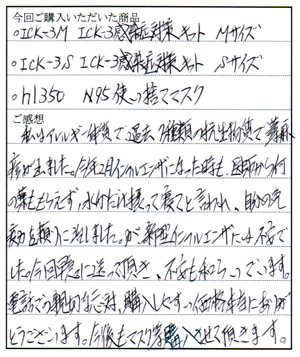 今回ご購入いただいた商品
○ICK-3M ICK-3感染症対策キット Mサイズ
○ICK-3S ICK-3感染症対策キット Sサイズ
○h1350 N95使い捨てマスク
ご感想
私はアレルギー体質で、過去7種類の抗生物質で薬疹
が出ました。今年2月インフルエンザになった時も、医師から何
の薬ももらえず、水だけたくさん摂って寝てと言われ、自分の免
疫力を頼りに治しました。が、新型インフルエンザには不安で
した。今回早急に送って頂き、不安も和らいでいます。
電話での親切な応対、購入しやすい価格 本当にありが
とうございます。今後もマスク等購入させて頂きます。